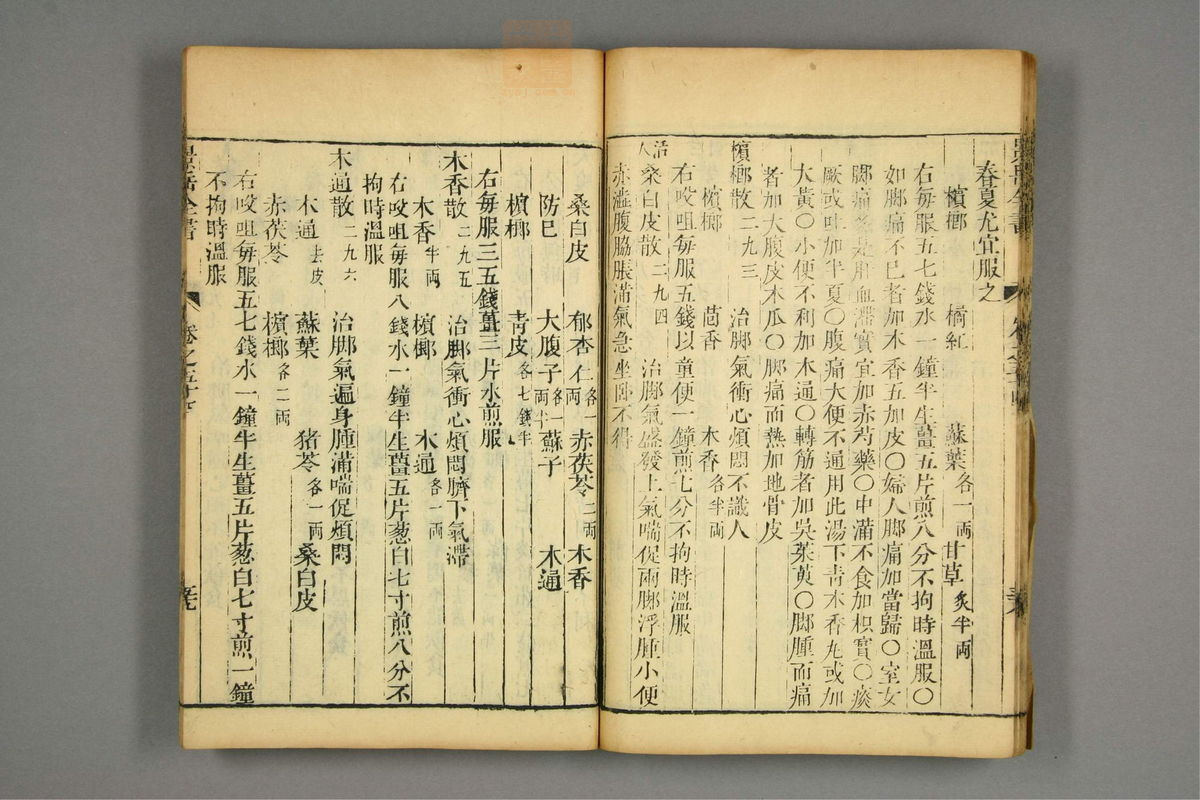 春夏尤宜服之
檳榔 橘紅 蘇葉各一兩 甘草炙半兩
右每服五七錢水一鐘半生薑五片煎八分不拘時溫服〇
如脚痛不已者加木香五加皮〇婦人脚痛加當歸〇室女
脚痛多是肝血滯實宜加赤芍藥〇中滿不食加枳實〇痰
厥或吐加半夏〇腹痛大便不通用此湯下青木香丸或加
大黃〇小便不利加木通〇轉筋者加吳茱萸〇脚腫而痛
者加大腹皮木瓜〇脚痛而熱加地骨皮
檳榔散二九三 治脚氣衝心煩悶不識人
檳榔 茴香 木香各半兩
右㕮咀每服五錢以童便一鐘煎七分不拘時溫服
活人桑白皮散二九四 治脚氣盛發上氣喘促兩脚浮腫小便
赤澁腹脇脹滿氣急坐臥不得
桑白皮 郁杏仁各一兩 赤茯苓二兩 木香
防巳 大腹子各一兩半 蘇子 木通
檳榔 青皮各七錢半
右每服三五錢薑三片水煎服
木香散二九五 治脚氣衝心煩悶臍下氣滯
木香半兩 檳榔 木通各一兩
右㕮咀每服八錢水一鐘半生薑五片葱白七寸煎八分不
拘時溫服
木通散二九六 治脚氣遍身腫滿喘促煩悶
木通去皮 蘇葉 猪苓各一兩 桑白皮
赤茯苓 檳榔各二兩
右㕮咀每服五七錢水一鐘半生薑五片葱白七寸煎一鐘
不拘時溫服
景岳全書 卷之五十